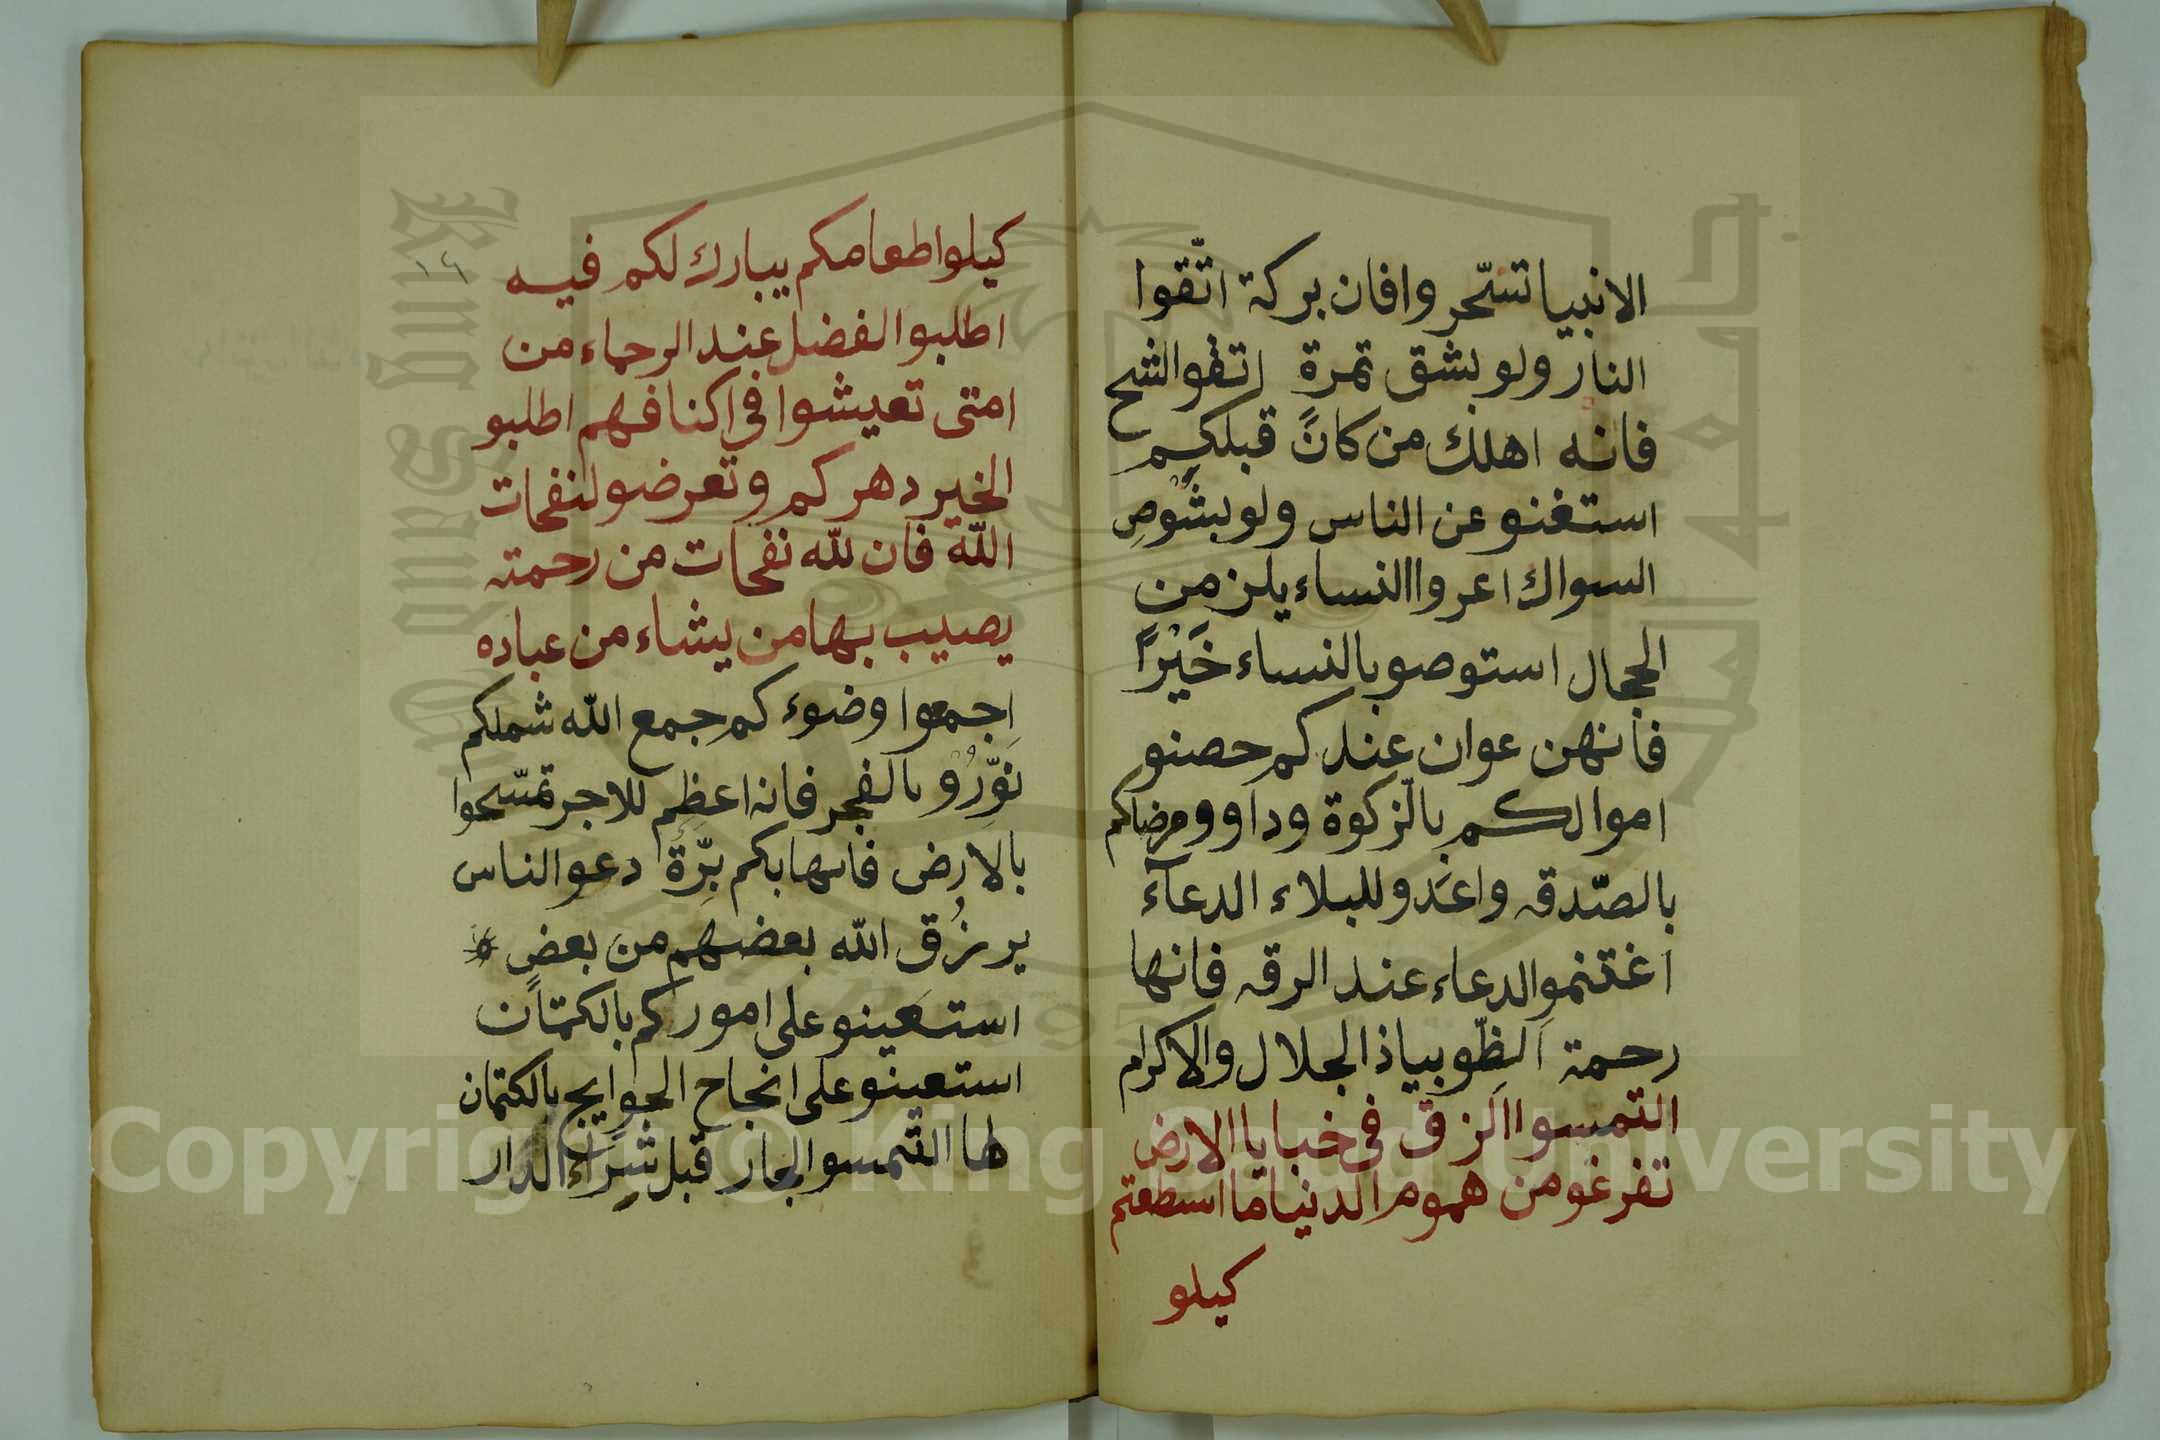 الانبيا تسّحروا فان بركة اتّقوا
النار ولو بشق تمرة اتقوا الشح
فانه اهلك من كان قبلكم
استغنو عن الناس ولو بشوصِ
السواك اعروا النساء يلزمن
الحجال استوصو بالنساء خَيْرًا
فانهن عوان عندكم حصنو
اموالكم بالزكوة وداوو مرضاكم
بالصّدقه واعدو للبلاء الدعآء
اغتنمو الدعاء عند الرقه فانها
رحمة الظّو بياذ الجلال والاكرام
التمسوا الرزق فى خبايا الارض
تفرغو من هموم الدنيا ما اسطعتم
كيلو
١٦
كيلوا طعامكم يبارك لكم فيه
اطلبوا الفضل عند الرحماء من
امتى تعيشوا فى اكنافهم اطلبو
الخير دهركم وتعرضو لنفحات
الله فان لله نفحات من رحمته
يصيب بها من يشاء من عباده
اجمعوا وضوءكم جمع الله شملكم
نوِّرُوْ بالفجر فانه اعظم للاجر تمسّحوا
بالارض فانها بكم برِّة دعو الناس
يرزُق الله بعضهم من بعضٍ
استعينو على اموركم بالكتمان
استعينو على انجاح الحوايج بالكتمان
لها التمسو الجار قبل شراء الدار
King Saud University
جامعة الملك سعود
1957
Copyright © King Saud University